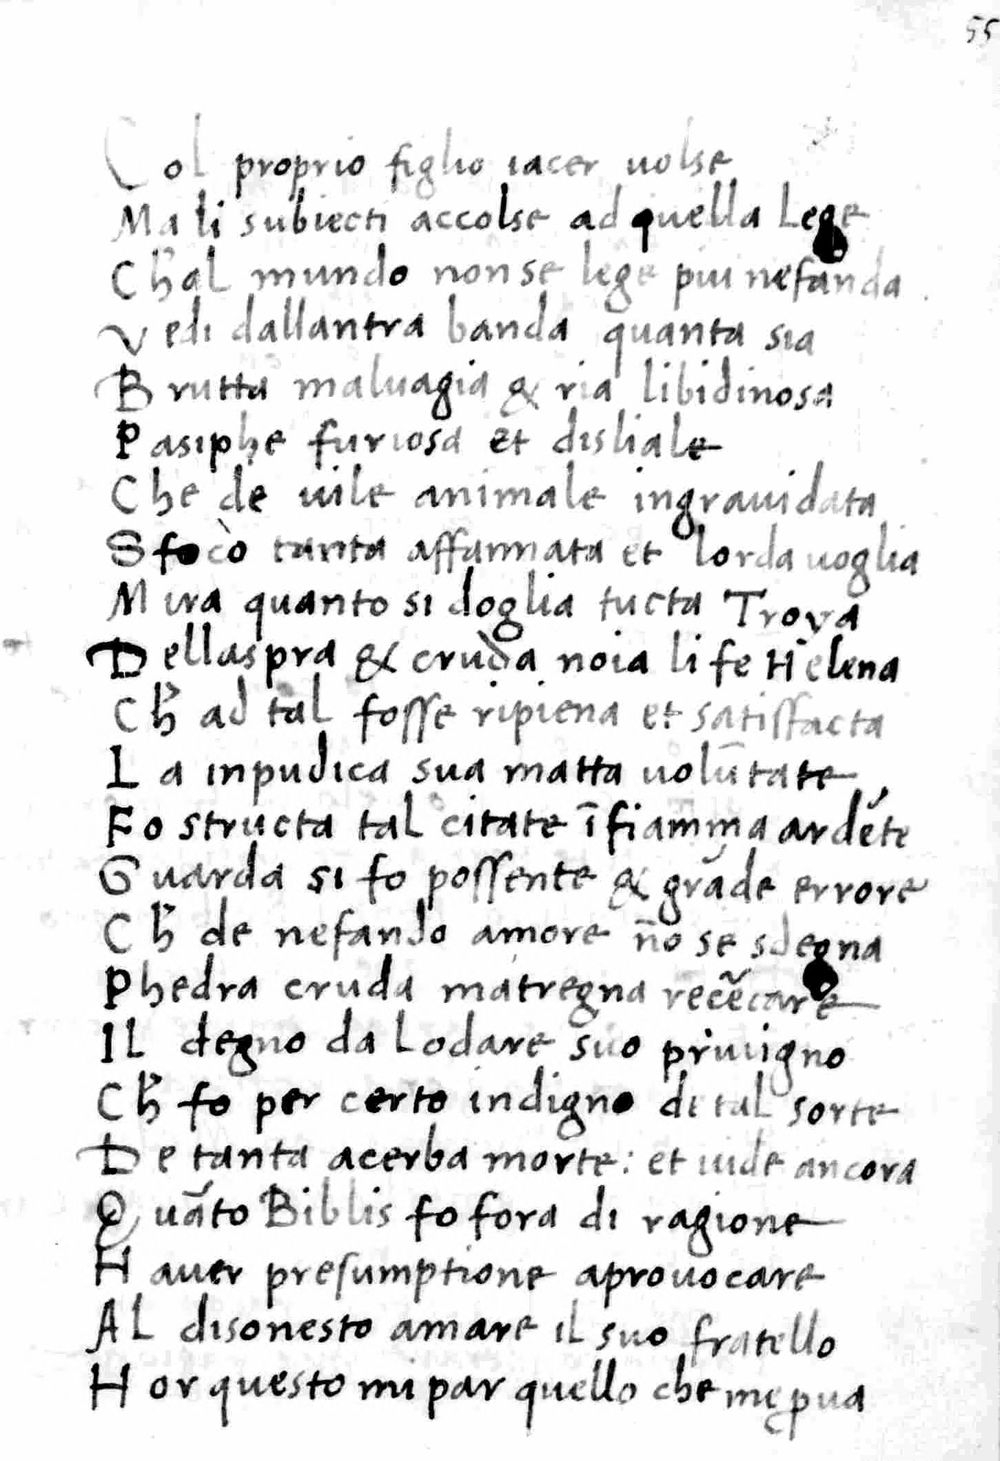 55
Col proprio figlio iacer uolse
Ma li subiecti accolse ad quella Lege
Ch̄ al mundo non se lege piu nefanda
Vedi dallantra banda quanta sia
Brutta maluagia & ria libidinosa
Pasiphe furiosa et disliale
Che de uile animale ingrauidata
Sfocò tanta affannata et lorda uoglia
Mira quanto si doglia tucta Troya
Dellaspra & cruda noia li fe Helena
Ch̄ ad tal fosse ripiena et satisfacta
La inpudica sua matta volūtate
Fo structa tal citate ī fiamma ardēte
Guarda si fo possente & grāde errore
Ch̄ de nefando amore nō se sdegna
Phedra cruda matregna recẽcare
Il degno da Lodare suo priuigno
Ch̄ fo per certo indigno di tal sorte
De tanta acerba morte: et uide ancora
Quāto Biblis fo fora di ragione
Hauer presumptione aprouocare
Al disonesto amare il suo fratello
Hor questo mi par quello che me ꝑua